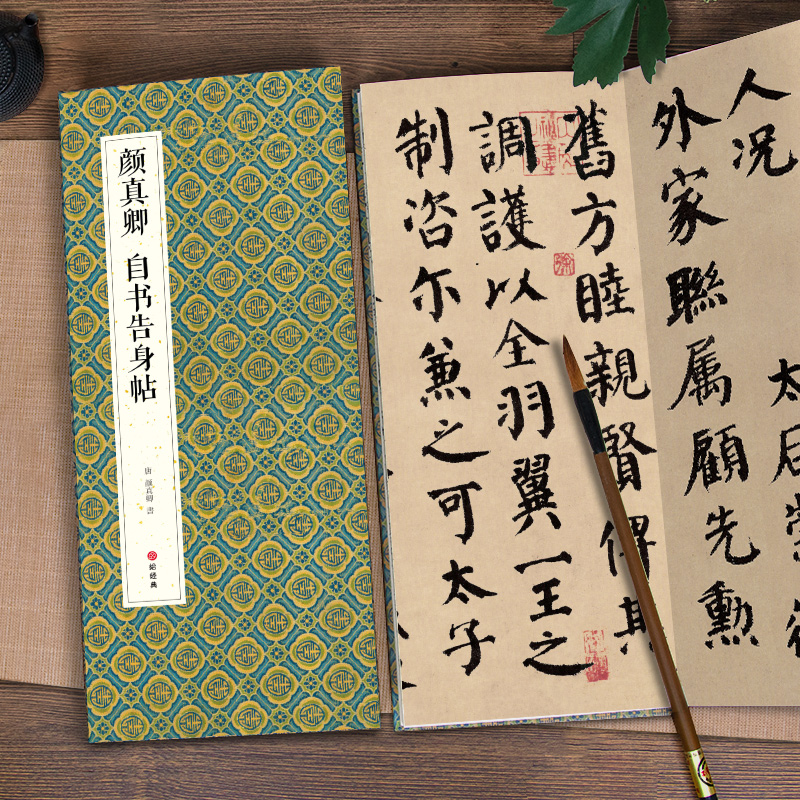 颜真卿 自书告身帖
唐 颜真卿 書
经典
人况 太后崇
外家聯属顧先勲
舊方睦親賢俾其
調護以全羽翼一王之
制咨尔兼之可太子